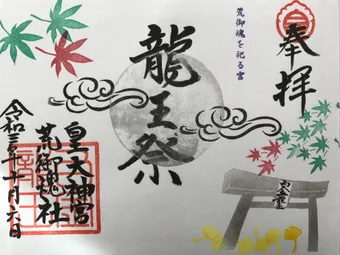 奉拝
荒御魂を祀る宮
龍王祭
皇大神宮
荒御魂社
令和三年十一月六日